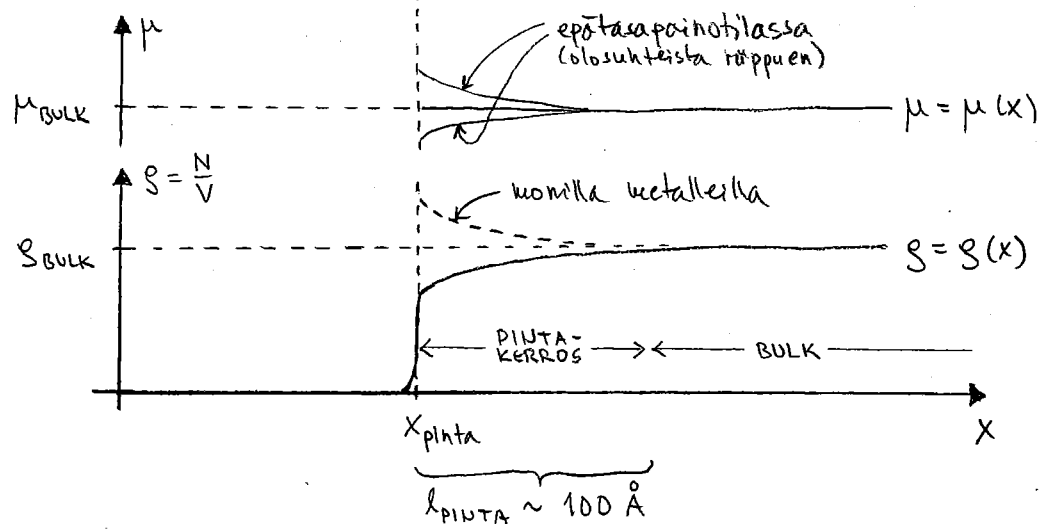 μ
epätasapainotilassa
(olosuhteista riippuen)
μBULK
μ = μ(x)
ρ = N/V
monilla metalleilla
ρBULK
ρ = ρ(x)
PINTA-
KERROS
BULK
xpinta
x
lPINTA ~ 100 Å